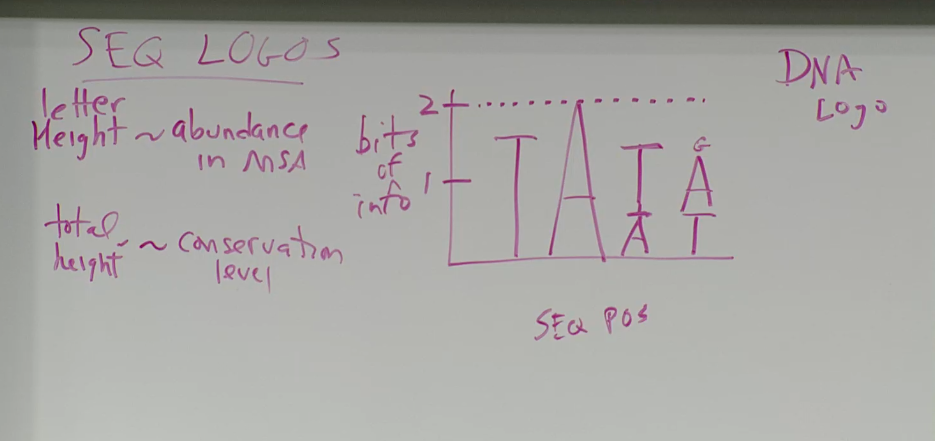 SEQ LOGOS
letter
Height ~ abundance
in MSA
total
height ~ conservation
level
DNA
Logo
bits
of
info
2
1
T A T G
A A
T
SEQ POS